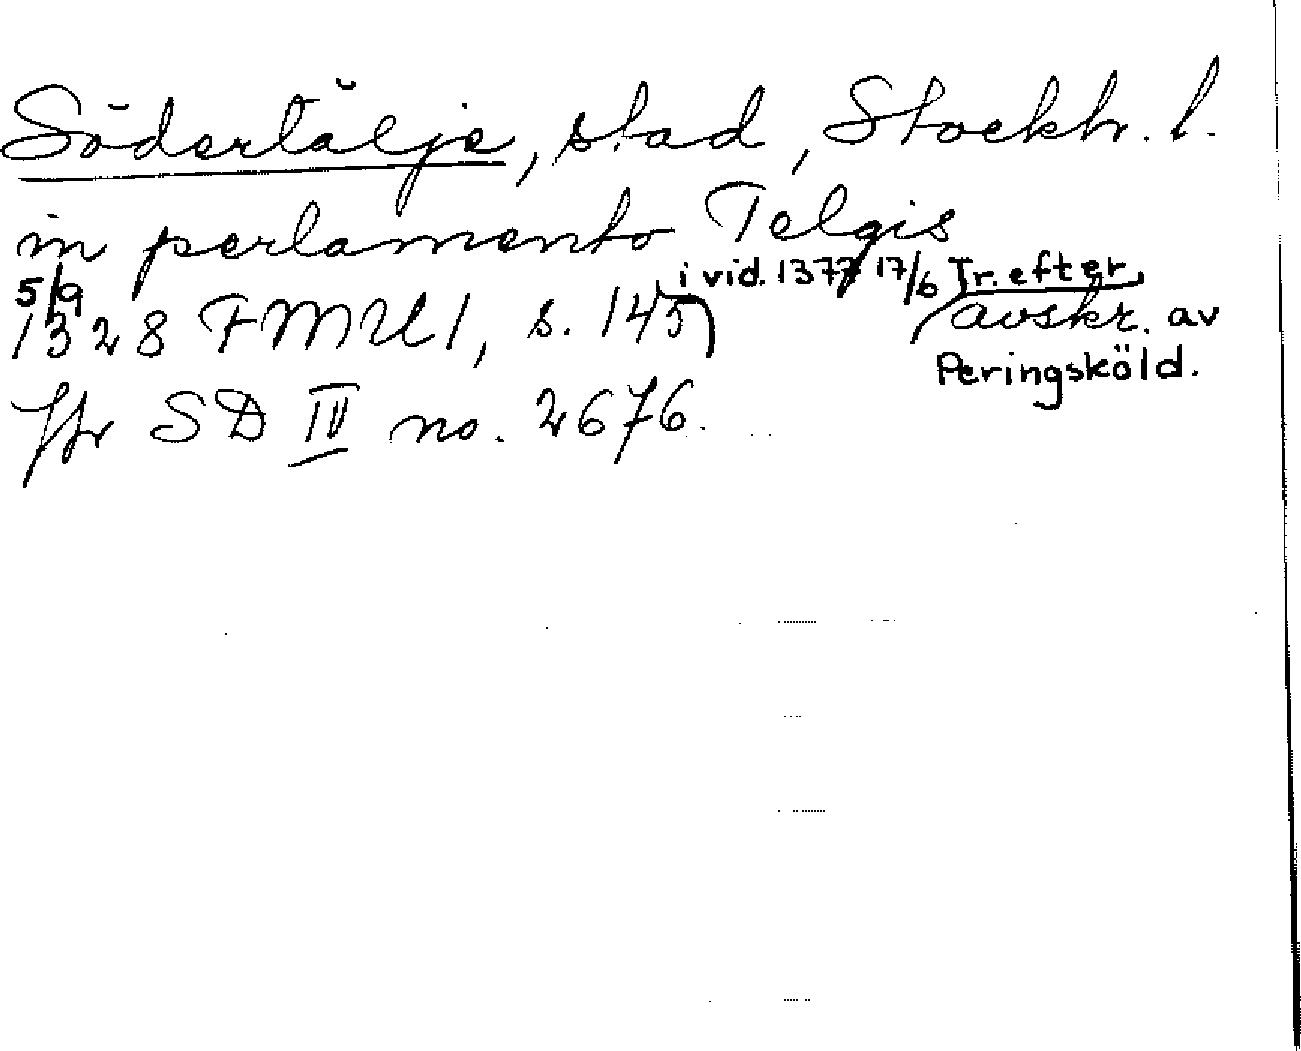 Södertälje, stad, Stockh. l.
in perlamento Telgis
5/9 1328 FMU 1, s. 145 i vid. 1377 17/6 Tr. efter
avskr. av
Peringsköld.
Jfr SD IV no. 2676.